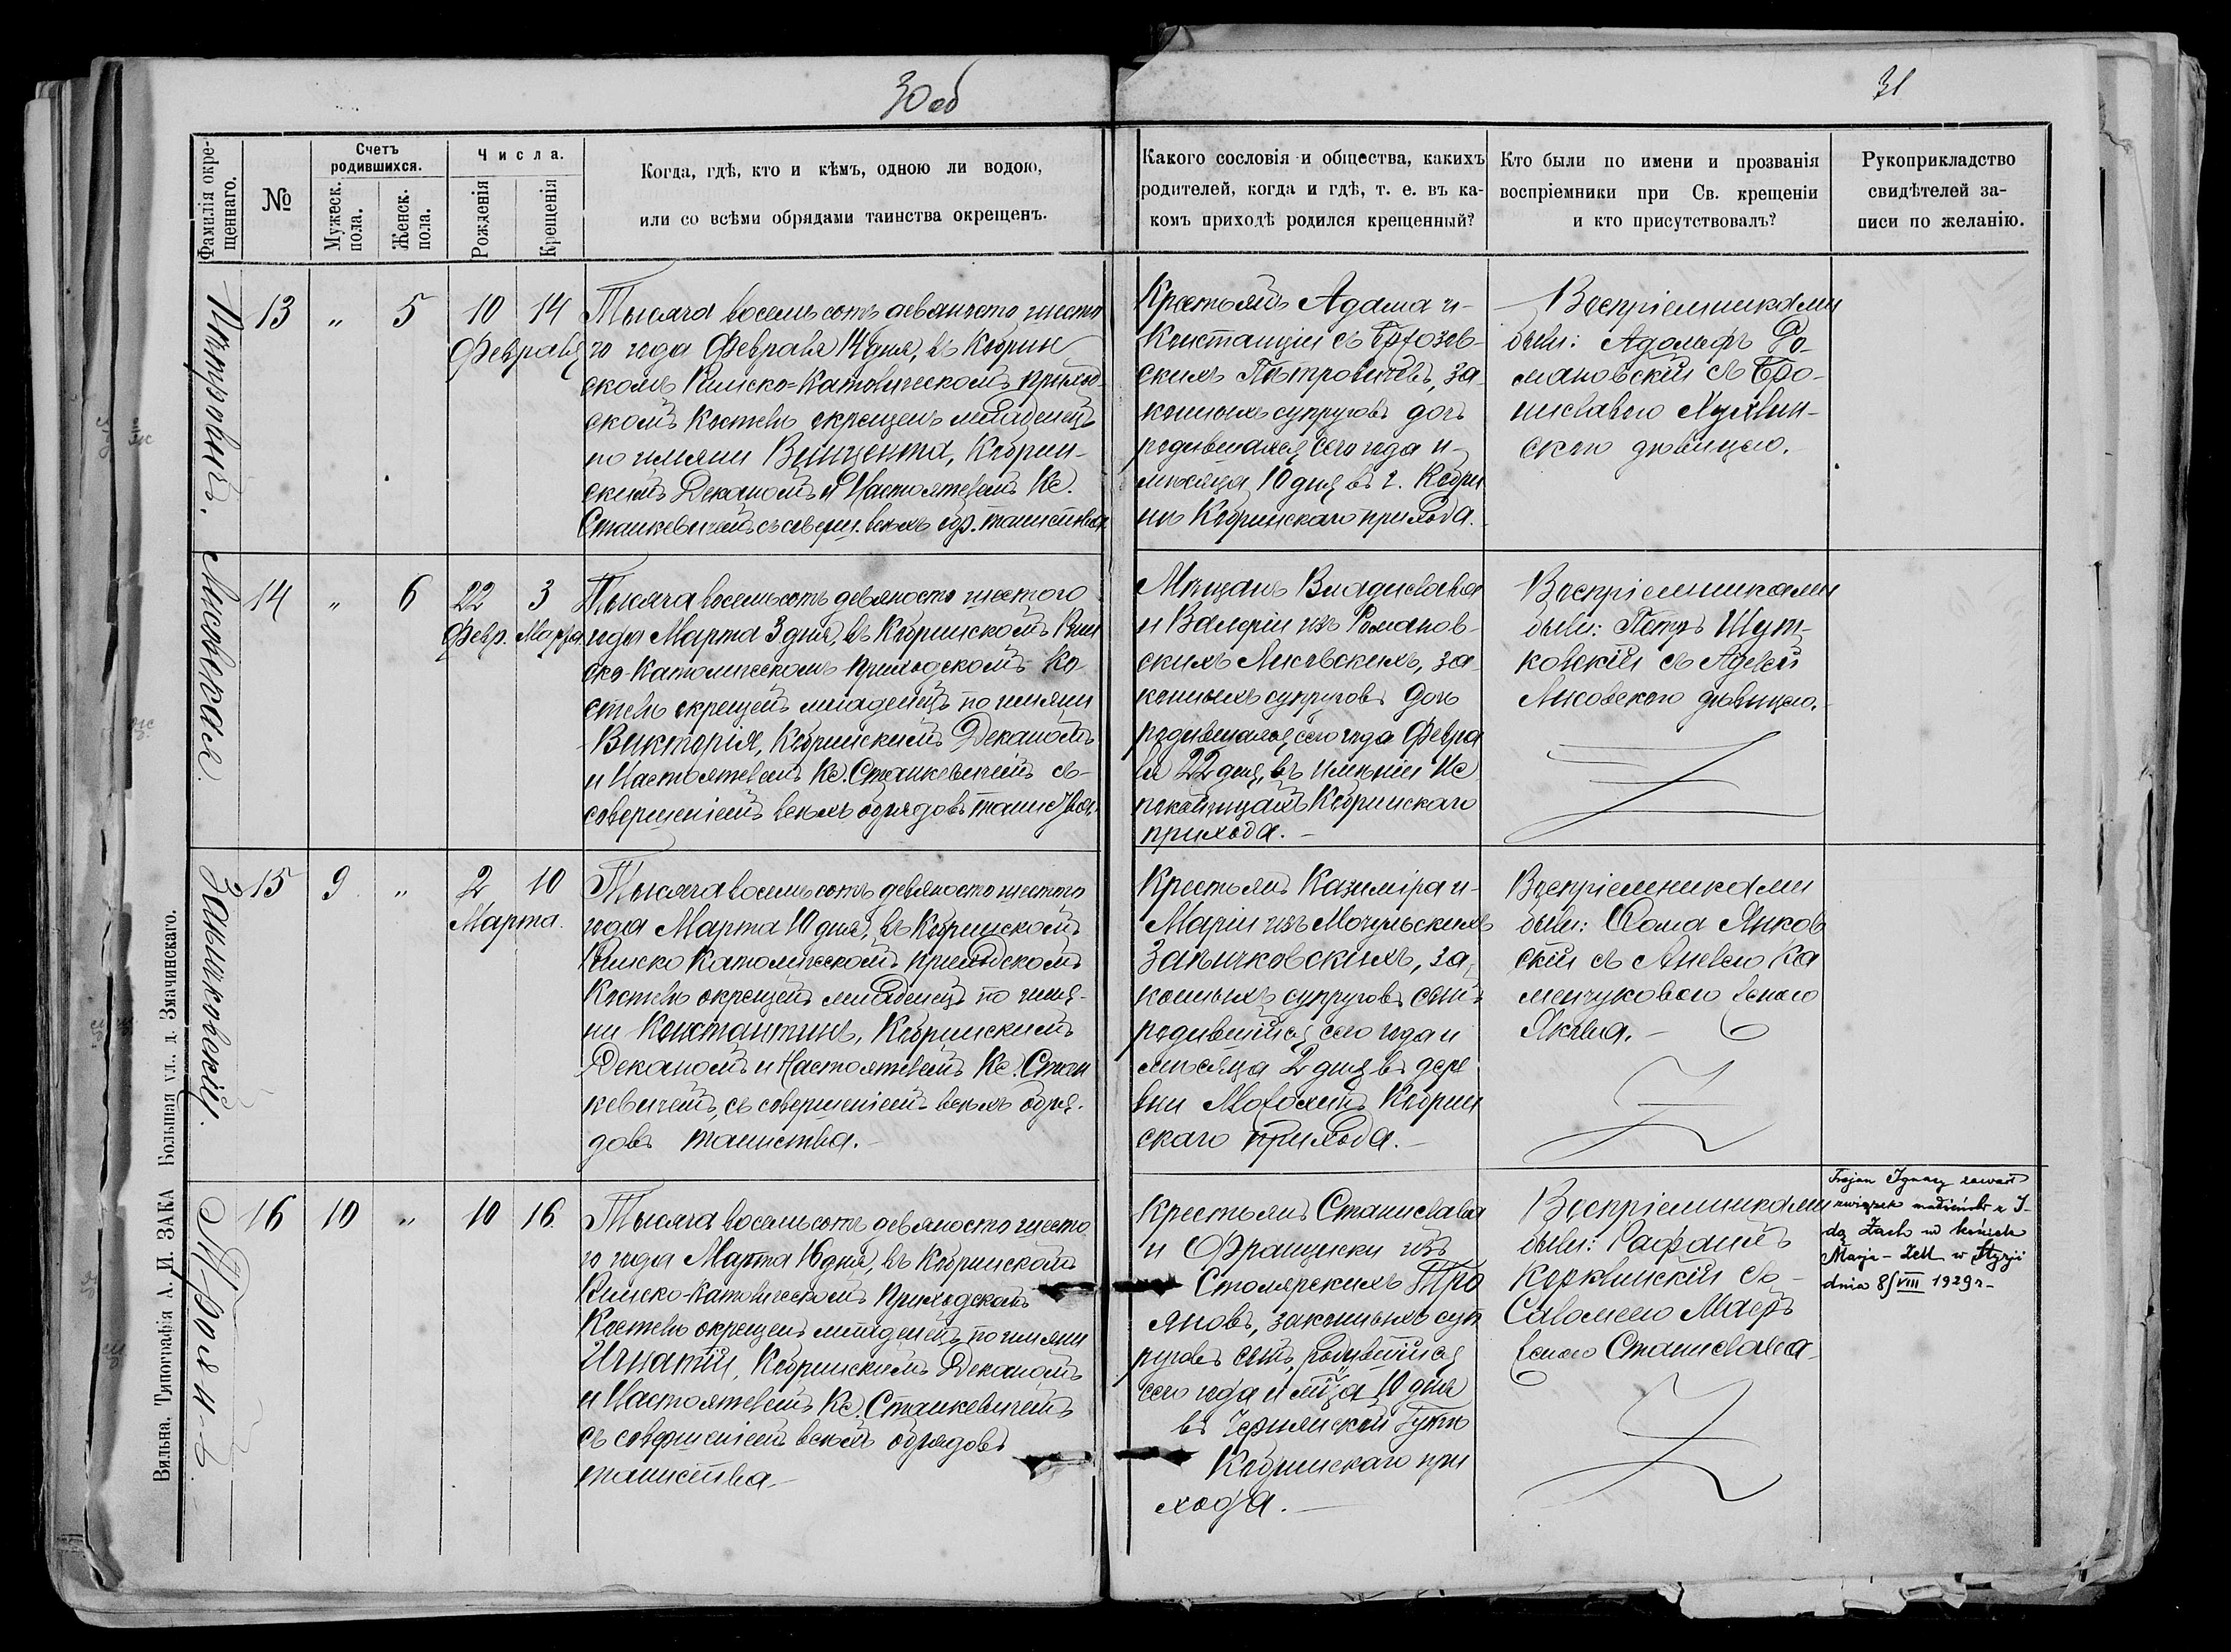 30 об
31
Фамилія окре-
щеннаго.
№
Счетъ
родившихся.
Мужеск.
пола.
Женск.
пола.
Числа.
Рожденія
Крещенія
Когда, гдѣ, кто и кѣмъ, одною ли водою,
или со всѣми обрядами таинства окрещенъ.
Какого сословія и общества, какихъ
родителей, когда и гдѣ, т. е. въ ка-
комъ приходѣ родился крещенный?
Кто были по имени и прозванія
воспріемники при Св. крещеніи
и кто присутствовалъ?
Рукоприкладство
свидѣтелей за-
писи по желанію.
Петровичъ.
13 " 5 10 14
Февраля
Тысяча восемьсотъ девяносто шесто
го года Февраля 14 дня, въ Кобрин
скомъ Римско-Католическомъ приход
скомъ Костелѣ окрещенъ младенецъ
по имяни Винцента, Кобрин-
скимъ Деканомъ и Настоятелемъ Кс.
Станкевичемъ съ соверш. всѣхъ обр. таинства.
Крестьянъ Адама и
Констанціи съ
скихъ Петровичей, за-
конныхъ супруговъ дочь
родившаяся сего года и
мѣсяца 10 дня въ г. Кобри
нѣ Кобринскаго прихода.
Воспріемниками
были: Адольфъ Ро-
мановскій съ Бро-
ниславою
скою дѣвицею.
Лисовская.
14 " 6 22 3
Февр. Марта
Тысяча восемьсотъ девяносто шестого
года Марта 3 дня, въ Кобринскомъ Рим
ско-Католическомъ приходскомъ Ко-
стелѣ окрещенъ младенецъ по имяни
Викторія, Кобринскимъ Деканомъ
и Настоятелемъ Кс. Станкевичемъ съ
совершеніемъ всѣхъ обрядовъ таинства.
Мѣщанъ Владислава
и Валеріи изъ Романов-
скихъ Лисовскихъ, за
конныхъ супруговъ дочь
родившаяся сего года Февра
ля 22 дня, въ имѣніи
Кобринскаго
прихода.
Воспріемниками
были: Петръ Шут-
ковскій съ Аделею
Лисовскою дѣвицею.
Заньчковскій.
15 9 " 2 10
Марта.
Тысяча восемьсотъ девяносто шестого
года Марта 10 дня, въ Кобринскомъ
Римско Католическомъ Приходскомъ
Костелѣ окрещенъ младенецъ по имя-
ни Константинъ, Кобринскимъ
Деканомъ и Настоятелемъ Кс. Стан
кевичемъ, съ совершеніемъ всѣхъ обря-
довъ таинства.
Крестьянъ Казиміра и
Маріи изъ Мочульскихъ
Заньчковскихъ, за-
конныхъ супруговъ сынъ
родившійся сего года и
мѣсяца 2 дня въ дере
вни Кобрин
скаго прихода.
Воспріемниками
были: Ѳома Янков
скій съ Анелею Ка
менчуковою женою
Якова.
Троян-ъ
16 10 " 10 16
Тысяча восемьсотъ девяносто шесто
го года Марта 16 дня, въ Кобринскомъ
Римско-Католическомъ Приходскомъ
Костелѣ окрещенъ младенецъ по имяни
Игнатій, Кобринскимъ Деканомъ
и Настоятелемъ Кс. Станкевичемъ
съ совершеніемъ всѣхъ обрядовъ
таинства
Крестьянъ Станислава
и Францишки изъ
Столярскихъ Тро
яновъ, законныхъ суп
руговъ сынъ, родившійся
сего года и мѣсяца 10 дня
въ Чернянской Гутѣ
Кобринскаго при
хода.
Воспріемниками
были: Рафаилъ
съ
Саломеею
женою Станислава
Trojan Ignacy zawarł
związek małżeński z I-
dą Zach w kościele
Maria-Zell w Styrji
dnia 8/VIII 1929 r.
Вильна. Типографія А. И. ЗАКА Большая ул. д. Змачинскаго.